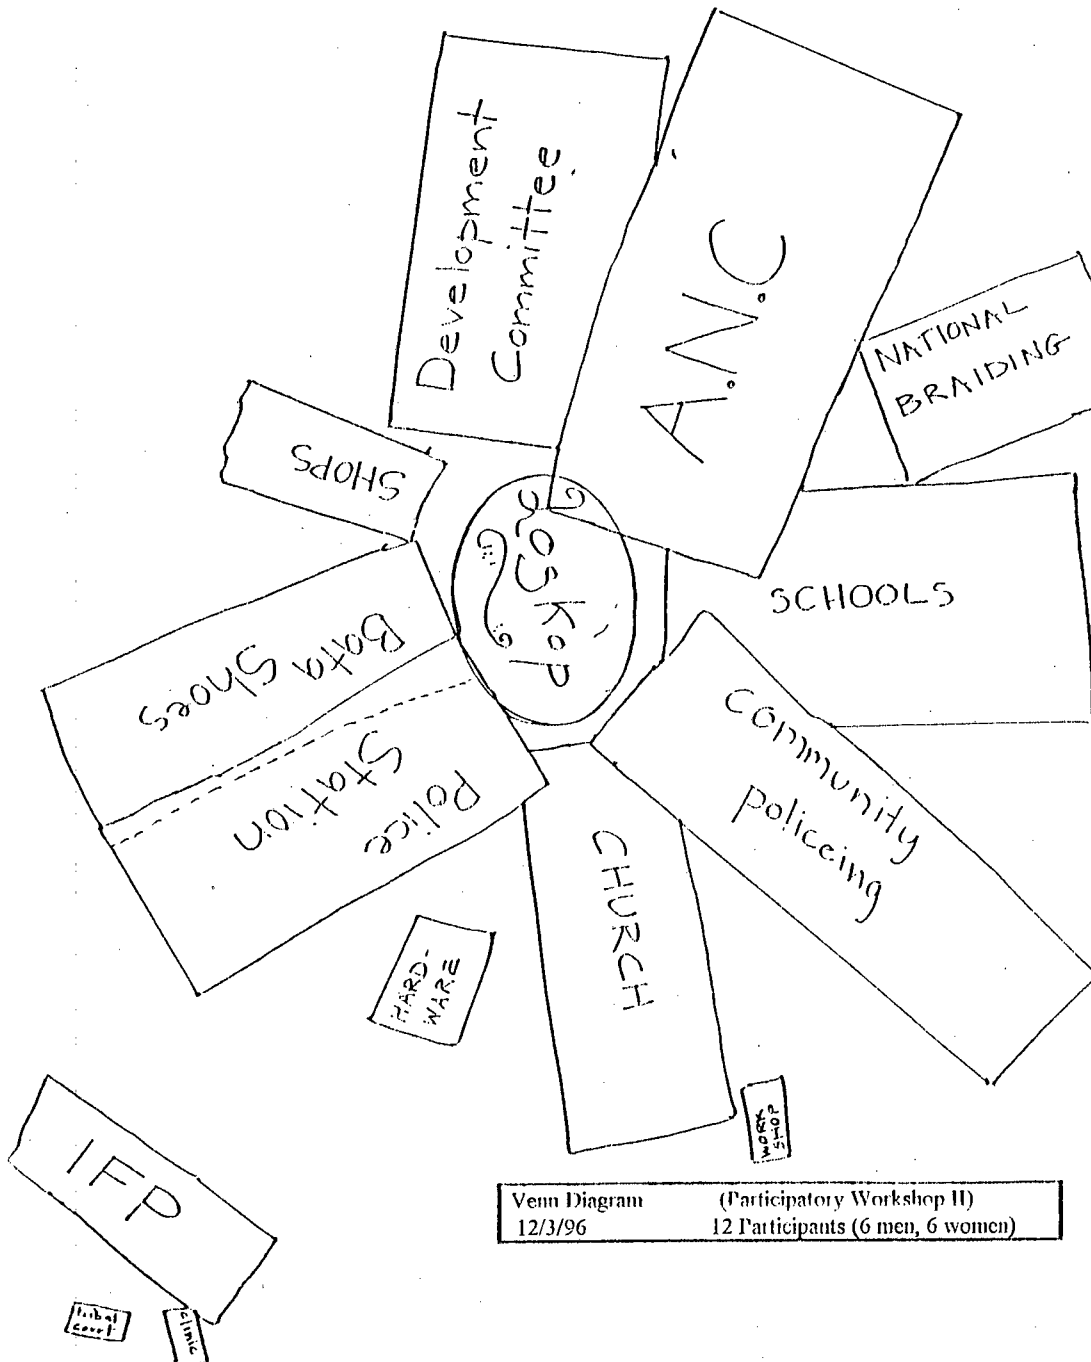 Development
Committee
A.N.C
NATIONAL
BRAIDING
SHOPS
Loskop
SCHOOLS
Bata Shoes
Police
Station
Community
policeing
CHURCH
HARD-
WARE
WORK
SHOP
IFP
tribal
court
clinic
Venn Diagram (Participatory Workshop II)
12/3/96 12 Participants (6 men, 6 women)